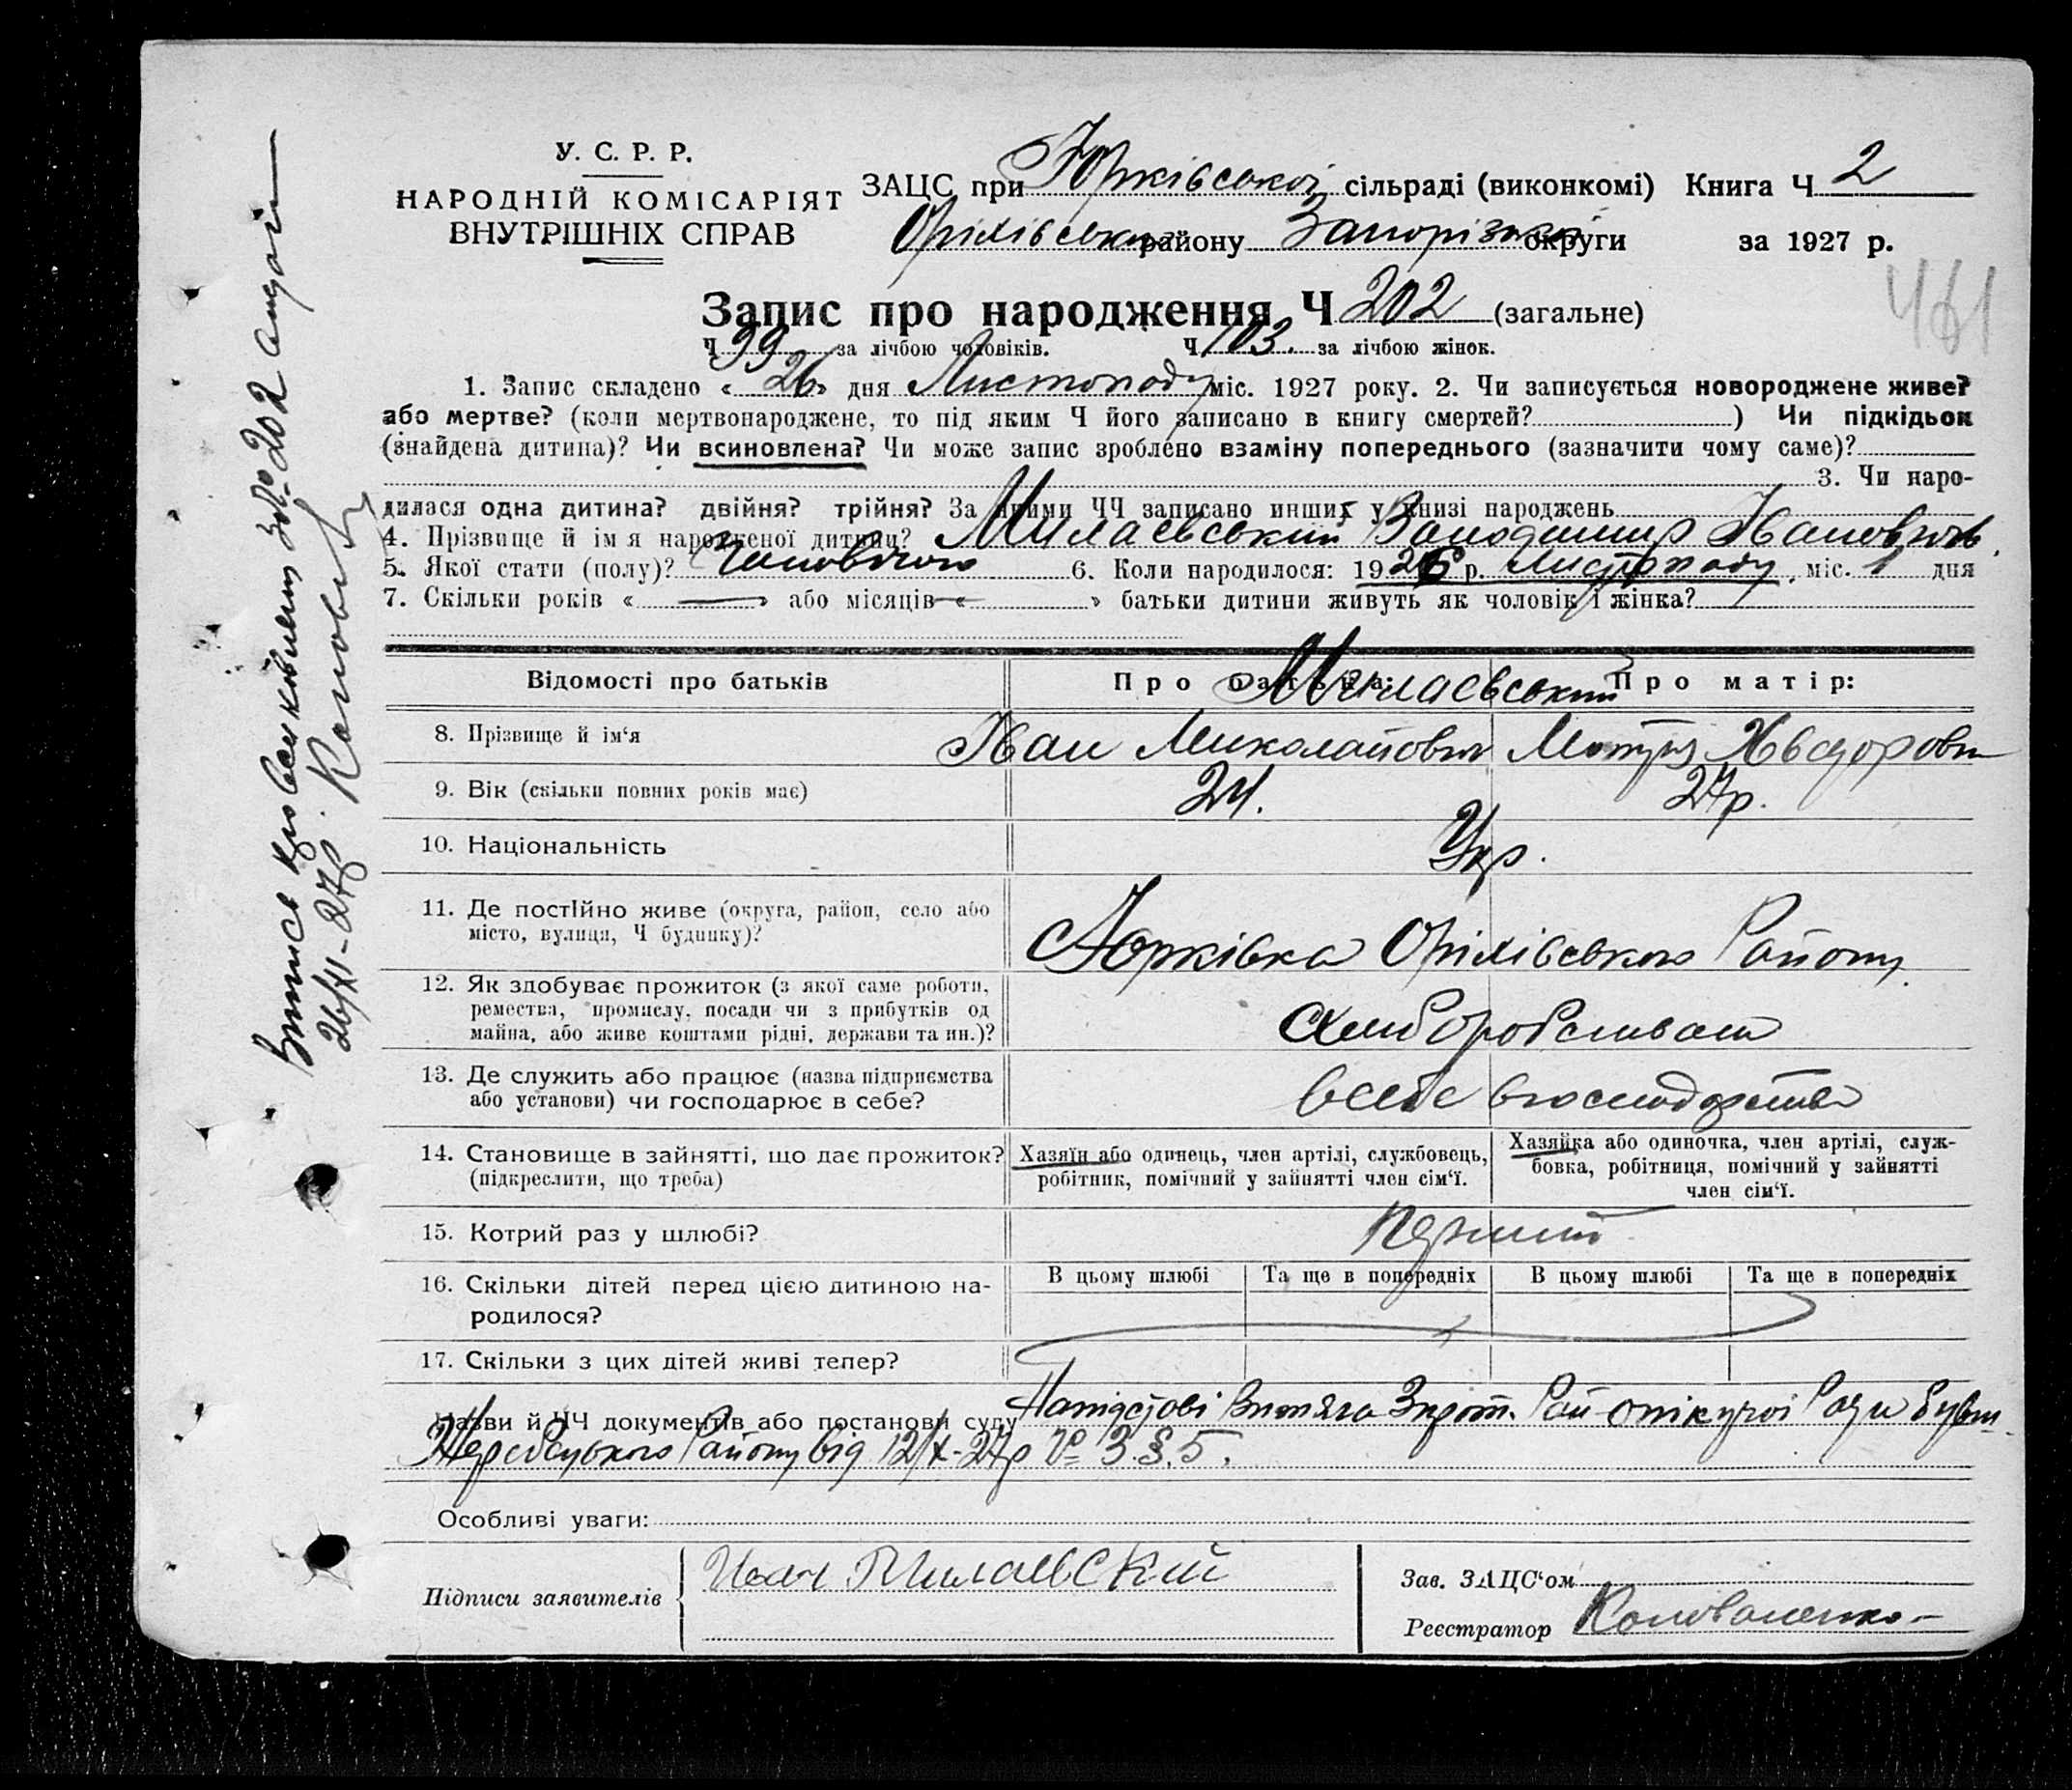 У. С. Р. Р.
НАРОДНІЙ КОМІСАРІЯТ
ВНУТРІШНІХ СПРАВ
ЗАЦС при Юрківській сільраді (виконкомі) Книга Ч 2
Оріхівського району Запорізької округи за 1927 р.
461
Запис про народження Ч 202 (загальне)
Ч 99 за лічбою чоловіків. Ч 103. за лічбою жінок.
1. Запис складено « 26 » дня Листопаду міс. 1927 року. 2. Чи записується новороджене живе?
або мертве? (коли мертвонароджене, то під яким Ч його записано в книгу смертей? ) Чи підкідьок
(знайдена дитина)? Чи всиновлена? Чи може запис зроблено взаміну попереднього (зазначити чому саме)?
3. Чи наро-
дилася одна дитина? двійня? трійня? За якими ЧЧ записано инших у книзі народжень
4. Прізвище й ім'я народженої дитини? Милаєвський Володимир Іванович.
5. Якої стати (полу)? Чоловічого 6. Коли народилося: 1926 р. Листопаду міс. 1 дня
7. Скільки років « — » або місяців « » батьки дитини живуть як чоловік і жінка?
Відомості про батьків Про батька: Про матір:
Милаєвський
8. Прізвище й ім'я Іван Миколайович
9. Вік (скільки повних років має) 24. 27р.
10. Національність Укр.
11. Де постійно живе (округа, район, село або
місто, вулиця, Ч будинку)? Юрківка Оріхівського Району
12. Як здобуває прожиток (з якої саме роботи,
ремества, промислу, посади чи з прибутків од
майна, або живе коштами рідні, держави та ин.)?
13. Де служить або працює (назва підприємства
або установи) чи господарює в себе?
14. Становище в зайнятті, що дає прожиток?
(підкреслити, що треба)
Хазяїн або одинець, член артілі, службовець,
робітник, помічний у зайнятті член сім'ї.
Хазяйка або одиночка, член артілі, служ-
бовка, робітниця, помічний у зайнятті
член сім'ї.
15. Котрий раз у шлюбі? перший
16. Скільки дітей перед цією дитиною на-
родилося?
В цьому шлюбі Та ще в попередніх В цьому шлюбі Та ще в попередніх
17. Скільки з цих дітей живі тепер?
Назви й ЧЧ документів або постанови суду
Жеребецького Району від 12/X-27р № 3 § 5.
Особливі уваги:
Підписи заявителів Иван Милаевский
Зав. ЗАЦС'ом
Реєстратор Коноваленко
202
26/XI-27р.